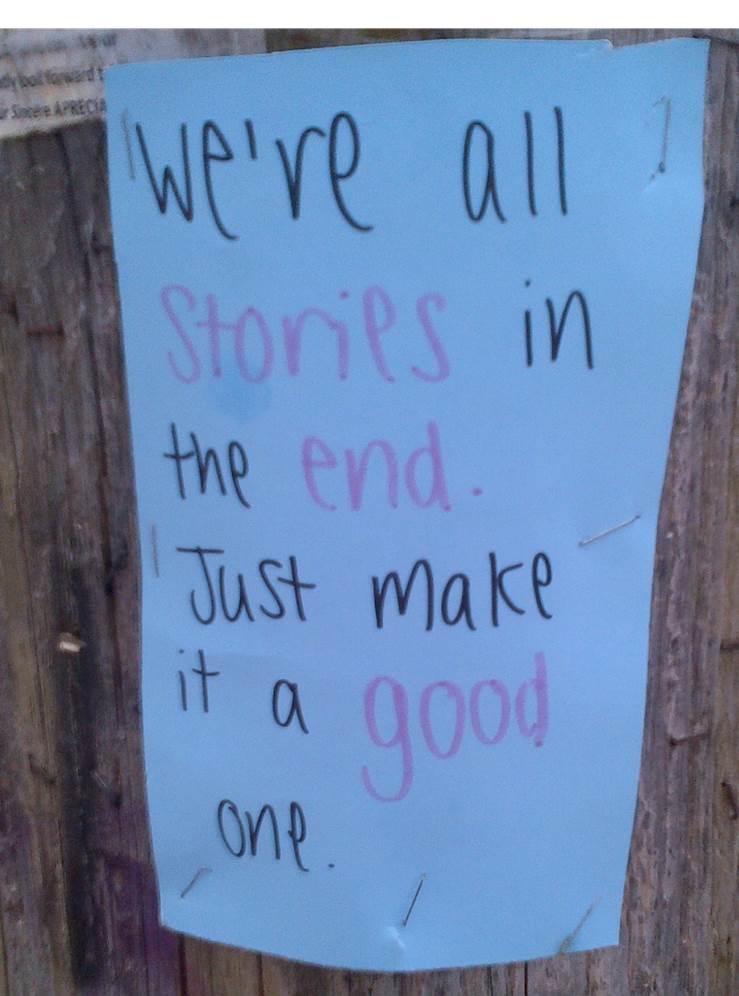 look forward
Sincere
We're all
Stories in
the end.
Just make
it a good
one.